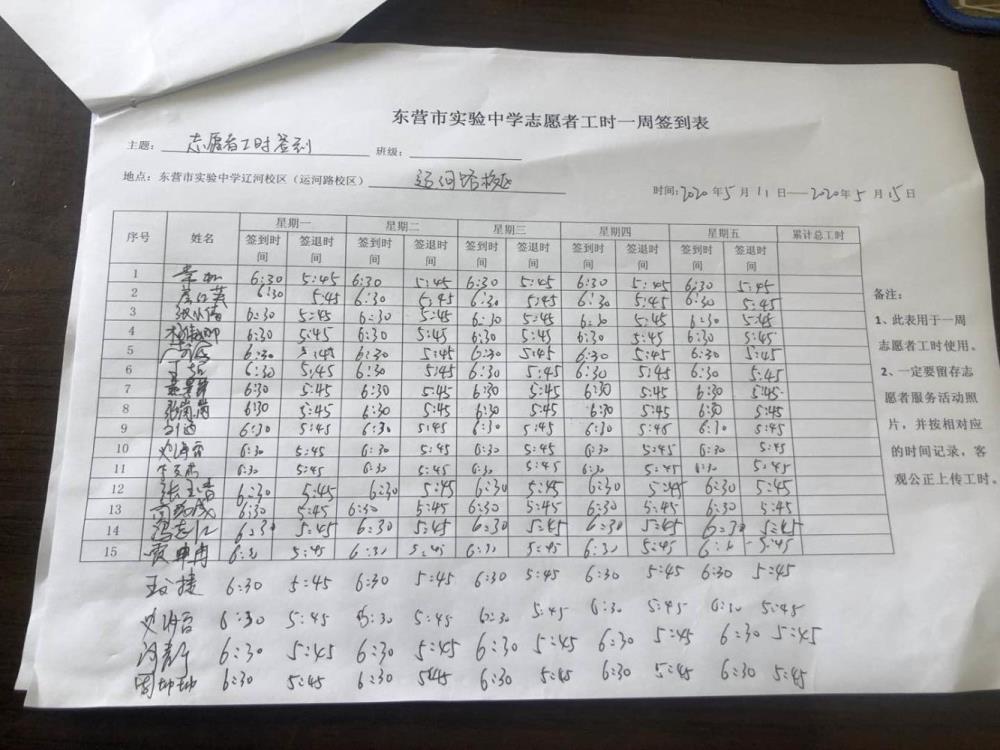 东营市实验中学志愿者工时一周签到表
主题: 志愿者工时签到 班级:
地点: 东营市实验中学辽河校区（运河路校区） 运河路校区
时间:2020年5月11日——2020年5月15日
序号 姓名 星期一 星期二 星期三 星期四 星期五 累计总工时
签到时间 签退时间 签到时间 签退时间 签到时间 签退时间 签到时间 签退时间 签到时间 签退时间
1 6:30 5:45 6:30 5:45 6:30 5:45 6:30 5:45 6:30 5:45
2 6:30 5:45 6:30 5:45 6:30 5:45 6:30 5:45 6:30 5:45
3 6:30 5:45 6:30 5:45 6:30 5:45 6:30 5:45 6:30 5:45
4 6:30 5:45 6:30 5:45 6:30 5:45 6:30 5:45 6:30 5:45
5 6:30 5:45 6:30 5:45 6:30 5:45 6:30 5:45 6:30 5:45
6 6:30 5:45 6:30 5:45 6:30 5:45 6:30 5:45 6:30 5:45
7 6:30 5:45 6:30 5:45 6:30 5:45 6:30 5:45 6:30 5:45
8 6:30 5:45 6:30 5:45 6:30 5:45 6:30 5:45 6:30 5:45
9 6:30 5:45 6:30 5:45 6:30 5:45 6:30 5:45 6:30 5:45
10 6:30 5:45 6:30 5:45 6:30 5:45 6:30 5:45 6:30 5:45
11 6:30 5:45 6:30 5:45 6:30 5:45 6:30 5:45 6:30 5:45
12 6:30 5:45 6:30 5:45 6:30 5:45 6:30 5:45 6:30 5:45
13 6:30 5:45 6:30 5:45 6:30 5:45 6:30 5:45 6:30 5:45
14 6:30 5:45 6:30 5:45 6:30 5:45 6:30 5:45 6:30 5:45
15 6:30 5:45 6:30 5:45 6:30 5:45 6:30 5:45 6:30 5:45
6:30 5:45 6:30 5:45 6:30 5:45 6:30 5:45 6:30 5:45
6:30 5:45 6:30 5:45 6:30 5:45 6:30 5:45 6:30 5:45
6:30 5:45 6:30 5:45 6:30 5:45 6:30 5:45 6:30 5:45
周坤坤 6:30 5:45 6:30 5:45 6:30 5:45 6:30 5:45 6:30 5:45
备注:
1、此表用于一周
志愿者工时使用。
2、一定要留存志
愿者服务活动照
片，并按相对应
的时间记录，客
观公正上传工时。